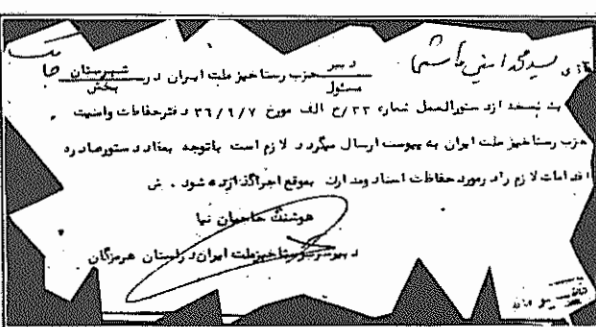 آقای سید محمد امینی هاشمی
دبیر
مسئول حزب رستاخیز ملت ایران در شهرستان
بخش
یک نسخه از دستورالعمل شماره ۲۳/ح الف مورخ ۳۶/۹/۷ دفتر حفاظت وامنیت
حزب رستاخیز ملت ایران به پیوست ارسال میگردد لازم است باتوجه بمفاد دستور صادره
اقدامات لازم را در مورد حفاظت اسناد ومدارک بموقع اجرا گذارده شود . ش
هوشنگ حاجبیان نیا
دبیر حزب رستاخیز ملت ایران در استان هرمزگان